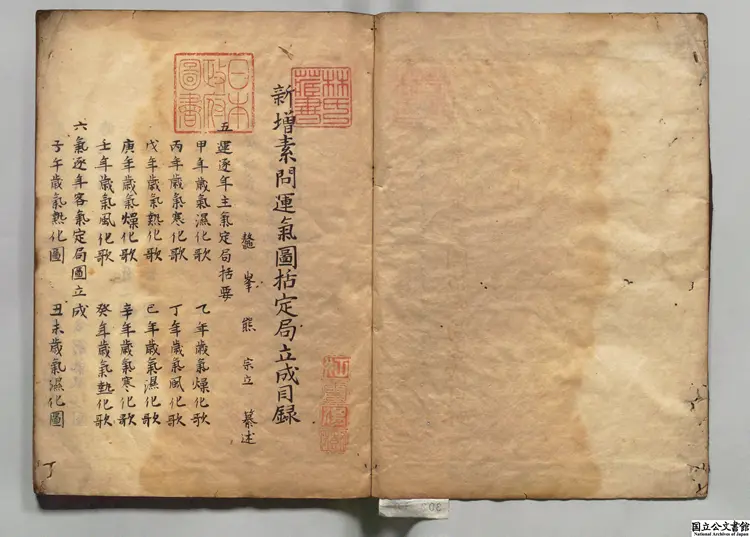 新增素問運氣圖括定局立成目録
鼇峯熊宗立纂述
五運逐年主氣定局括要
甲年歲氣濕化歌 乙年歲氣燥化歌
丙年歲氣寒化歌 丁年歲氣風化歌
戊年歲氣熱化歌 己年歲氣濕化歌
庚年歲氣燥化歌 辛年歲氣寒化歌
壬年歲氣風化歌 癸年歲氣熱化歌
六氣逐年客氣定局圖立成
子午歲氣熱化圖 丑未歲氣濕化圖
林氏藏書
日本政府圖書
国立公文書館
National Archives of Japan